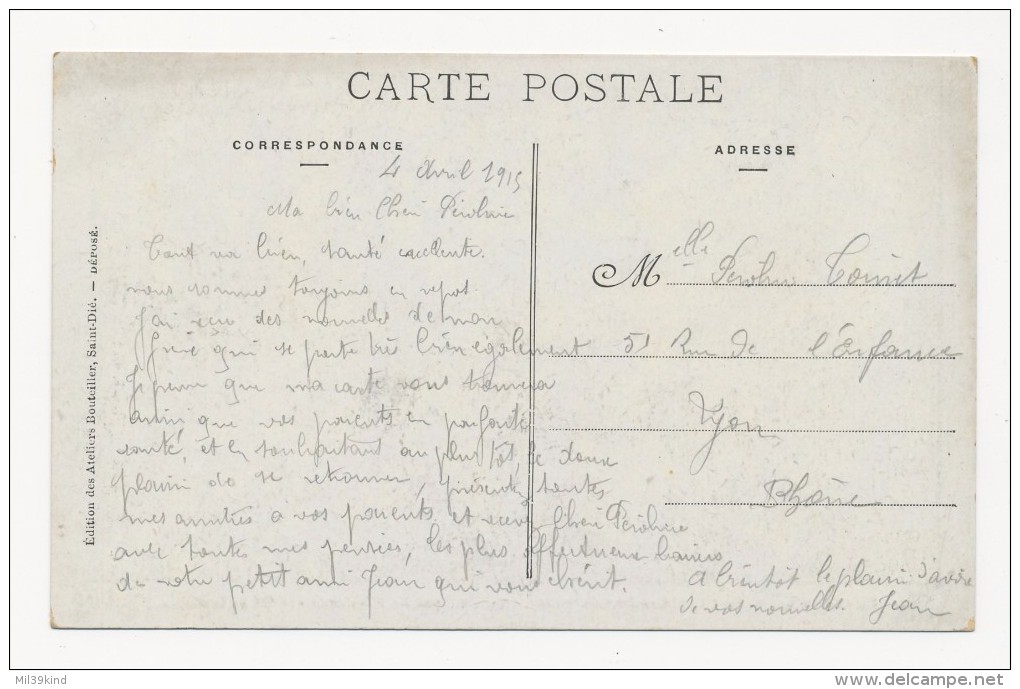 CARTE POSTALE
CORRESPONDANCE
ADRESSE
4 Avril 1915
Ma bien Cheri
Tout va bien, santé excellente.
nous sommes toujours en repos
J'ai reçu des nouvelles de mon
qui se porte très bien également
Je pense que ma carte vous trouvera
ainsi que vos parents en parfaite
santé, et en souhaitant au plus tôt, le doux
plaisir de se retrouver, présentez toutes
mes amitiés a vos parents et recevez Cheri
avec toutes mes pensées, les plus affectueux baisers
de votre petit ami Jean qui vous chérit.
A bientôt le plaisir d'avoir
de vos nouvelles. Jean
Melle
51 Rue de l'Enfance
Lyon
Rhône
Édition des Ateliers Bouteiller, Saint-Dié. — DÉPOSÉ.
Mil39kind
delcampe.net